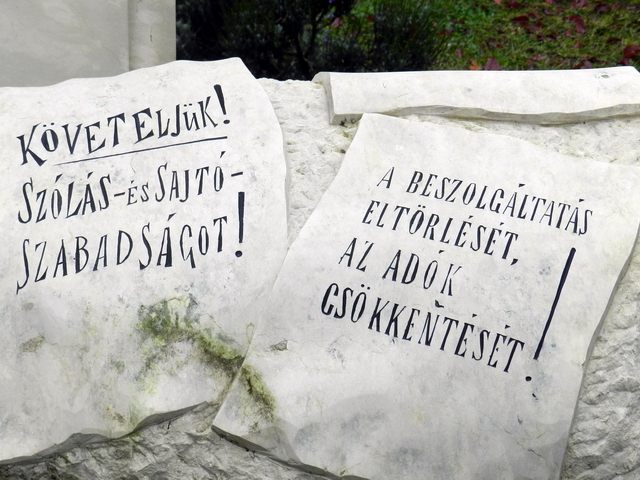 KÖVETELJÜK!
SZÓLÁS-ÉS SAJTÓ-
SZABADSÁGOT!
A BESZOLGÁLTATÁS
ELTÖRLÉSÉT,
AZ ADÓK
CSÖKKENTÉSÉT!